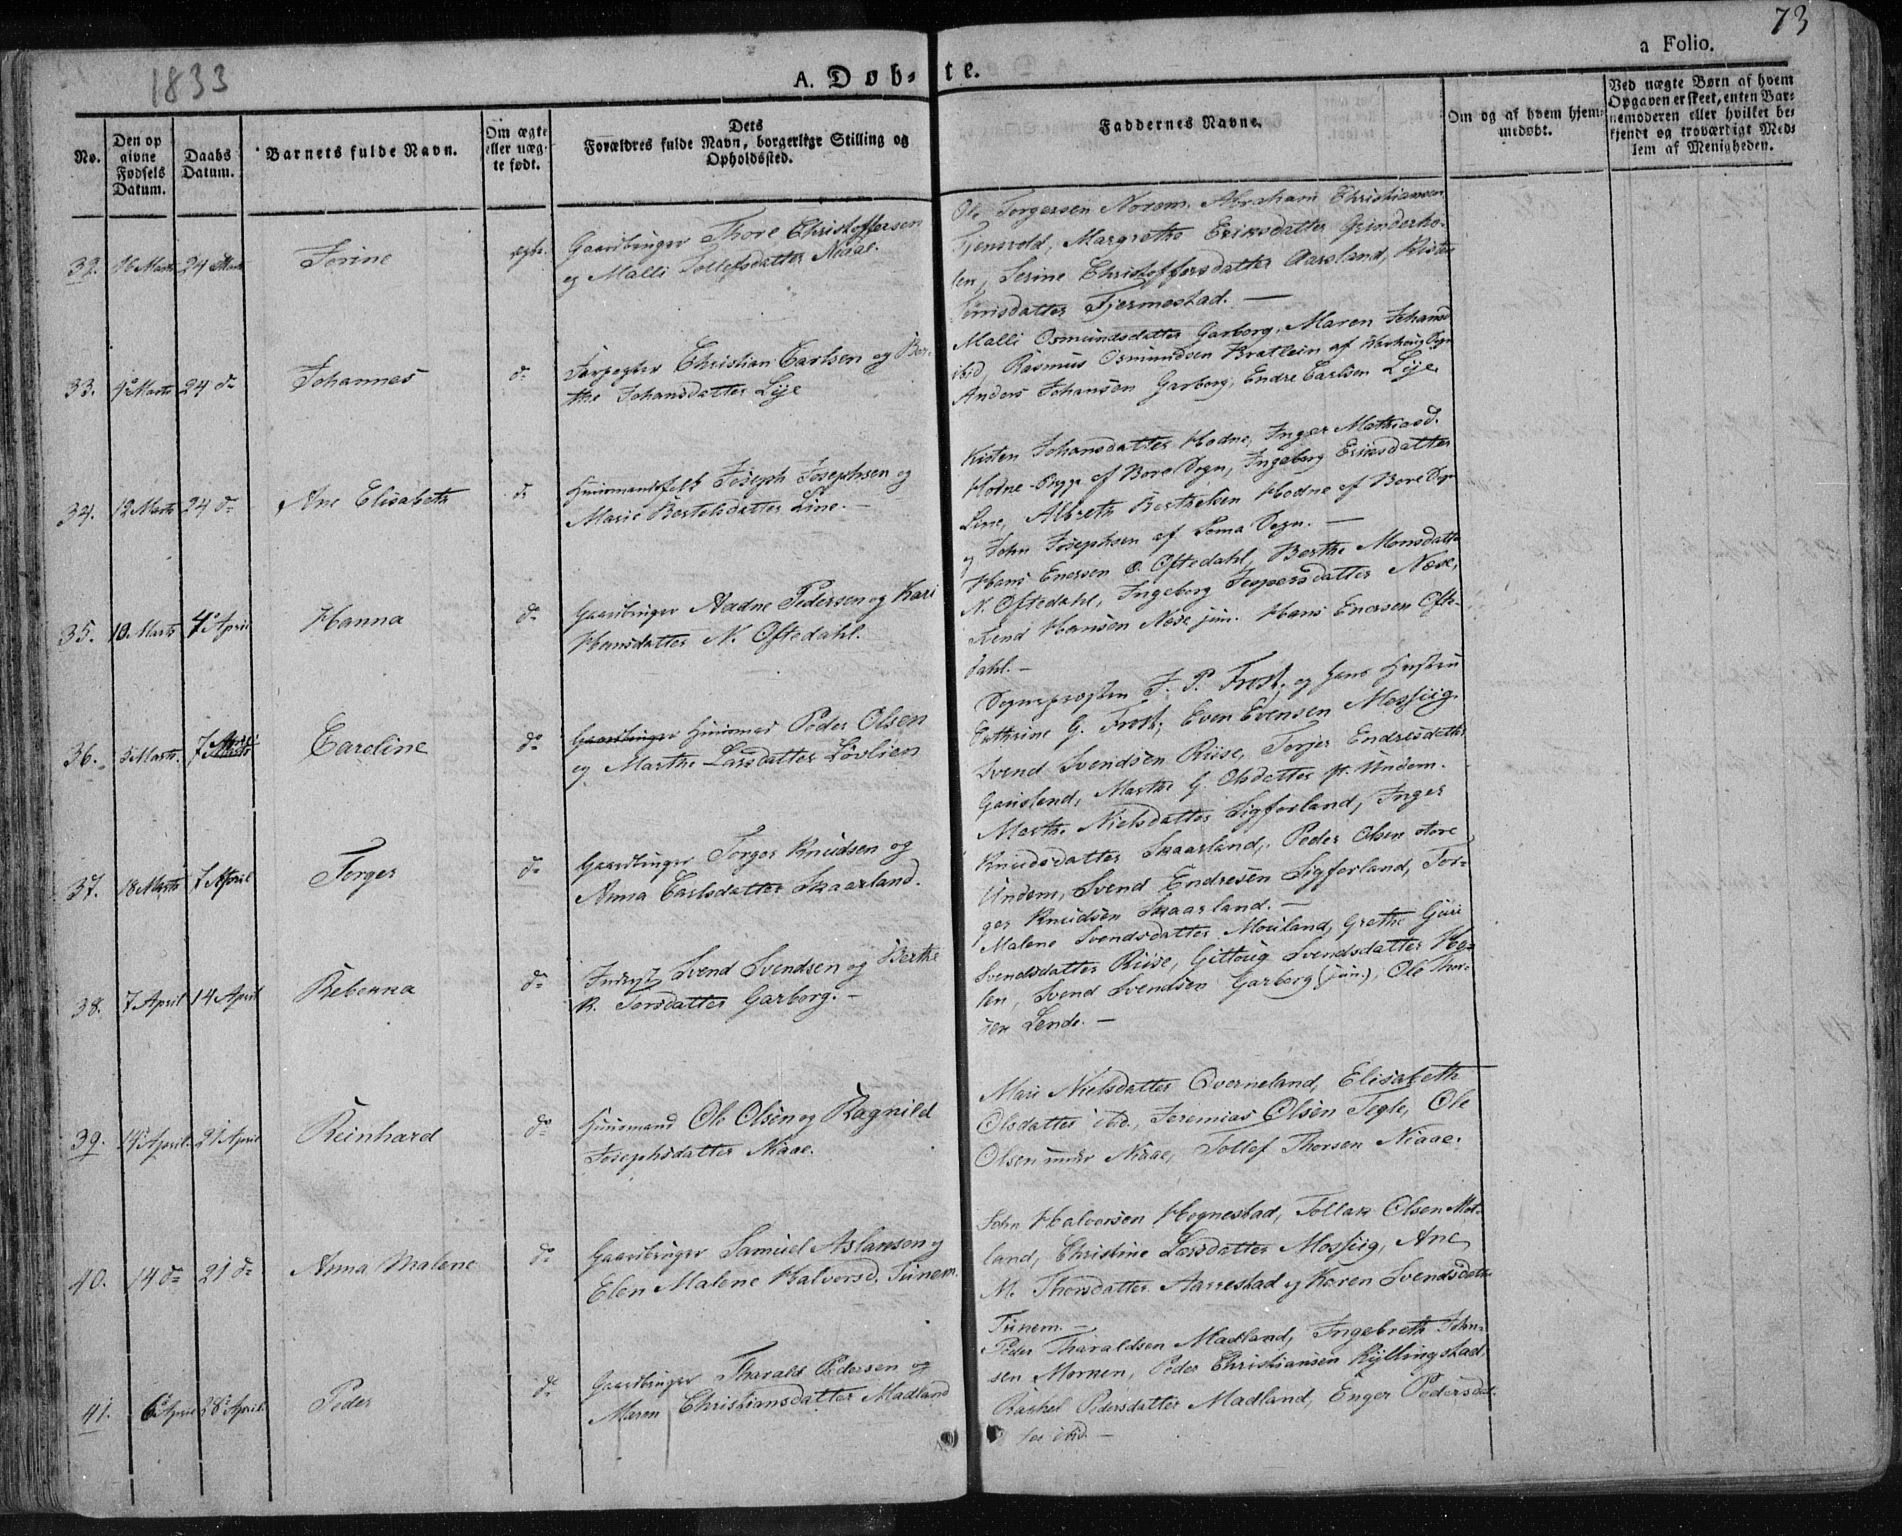 73
1833
A. Døb-te.
a Folio.
No.
Den op
givne
Fødsels
Datum.
Daabs
Datum.
Barnets fulde Navn.
Om ægte
eller uæg-
te født.
Dets
Forældres fulde Navn, borgerlige Stilling og
Opholdssted.
Faddernes Navne.
Om og af hvem hjem-
medøbt.
Ved uægte Børn af hvem
Opgaven er skeet, enten Bar-
nemoderen eller hvilket be-
kjendt og troværdigt Med-
lem af Menigheden.
32. 16 Marts 24 Marts
Serine
ægte.
Gaardbruger Thore Christoffersen
og Malli Tollefsdatter Niaae.
Ole Torgersen Norem. Abraham Christiansen
Margrethe Eriksdatter Grinderho-
len, Serine Christoffersdatter Aarsland,
Tjermestad. —
33. 4 Marts 24 do
Johannes
do
Christian Carlsen og Ber-
the Johansdatter Lye
Malli Osmundsdatter Garborg. Maren Johansd
ibid, Rasmus Osmundsen Bratlein af
Anders Johansen Garborg, Endre Carlsen Lye.
34. 12 Marts 24 do
Ane Elisabeth
do
Huusmandsfolk Joseph Josephsen og
Marie Bertelsdatter Line. —
Kisten Johansdatter Hodne, Inger Mathiasd.
Hodne af Bore Sogn, Ingeborg Eriksdatter
Line, Albreth Hodne af Bore Sogn
og John Josephsen af Soma Sogn. —
35. 10 Marts 4 April
Hanna
do
Gaardbruger Aadne Pedersen og Kari
Hansdatter N. Oftedahl.
Hans Enersen Ø. Oftedahl, Berthe Monsdatter
N. Oftedahl, Ingeborg Jespersdatter Næse,
Hansen Næse jun. Hans Enersen Ofte-
dahl. —
36. 5 Marts. 7 April
Caroline
do
Gaardbruger Huusmand Peder Olsen
og Marthe Larsdatter Løvlien
Sognepræsten F. P. Frost, og hans Hustru
Cathrine G. Frost; Even Evensen Mossiig.
Svend Svendsen Riise, Torjer Endresdatter
Garisland, Marthe G. Olsdatter st. Undem.
37. 18 Marts 7 April
Torger
do
Gaardbruger Torger Knudsen og
Anna Carlsdatter Skaarland.
Marthe Nielsdatter Sigforland, Inger
Knudsdatter Skaarland, Peder Olsen store
Undem, Svend Endresen Sigforland, Tor-
ger Knudsen Skaarland. —
38. 7 April 14 April
Rebekka
do
Inderst Svend Svendsen og Berthe
R. Torsdatter Garborg. —
Malene Svendsdatter Mouland, Grethe Guri
Svendsdatter Riise, Gittoug Svendsdatter Hø-
len, Svend Svendsen Garborg (jun.), Ole Thor-
sen Lende. —
39. 14 April 21 April
Reinhard
do
Huusmand Ole Olsen og Ragnild
Josephsdatter Niaae.
Mari Nielsdatter Qverneland, Elisabeth
Olsdatter ibid., Jeremias Olsen Tegle, Ole
Olsen Niaae, Tollef Thorsen Niaae.
40. 14 do 21 do
Anna Malene
do
Gaardbruger Samuel Aslansen og
Elen Malene Halvorsd. Tunem.
John Halvorsen Hognestad, Tollak Olsen Mot-
land, Christine Larsdatter Mossiig, Ane
M. Thorsdatter Aarrestad og Karen Svendsdatter
Tunem. —
41. 6 April 28 April
Peder
do
Gaardbruger Tharald Pedersen og
Maren Christiansdatter Madland
Peder Tharaldsen Madland, Ingebreth John-
sen Mornen, Peder Christiansen Kyllingstad
Rachel Pedersdatter Madland, Enger Pedersdat-
ter ibid. —